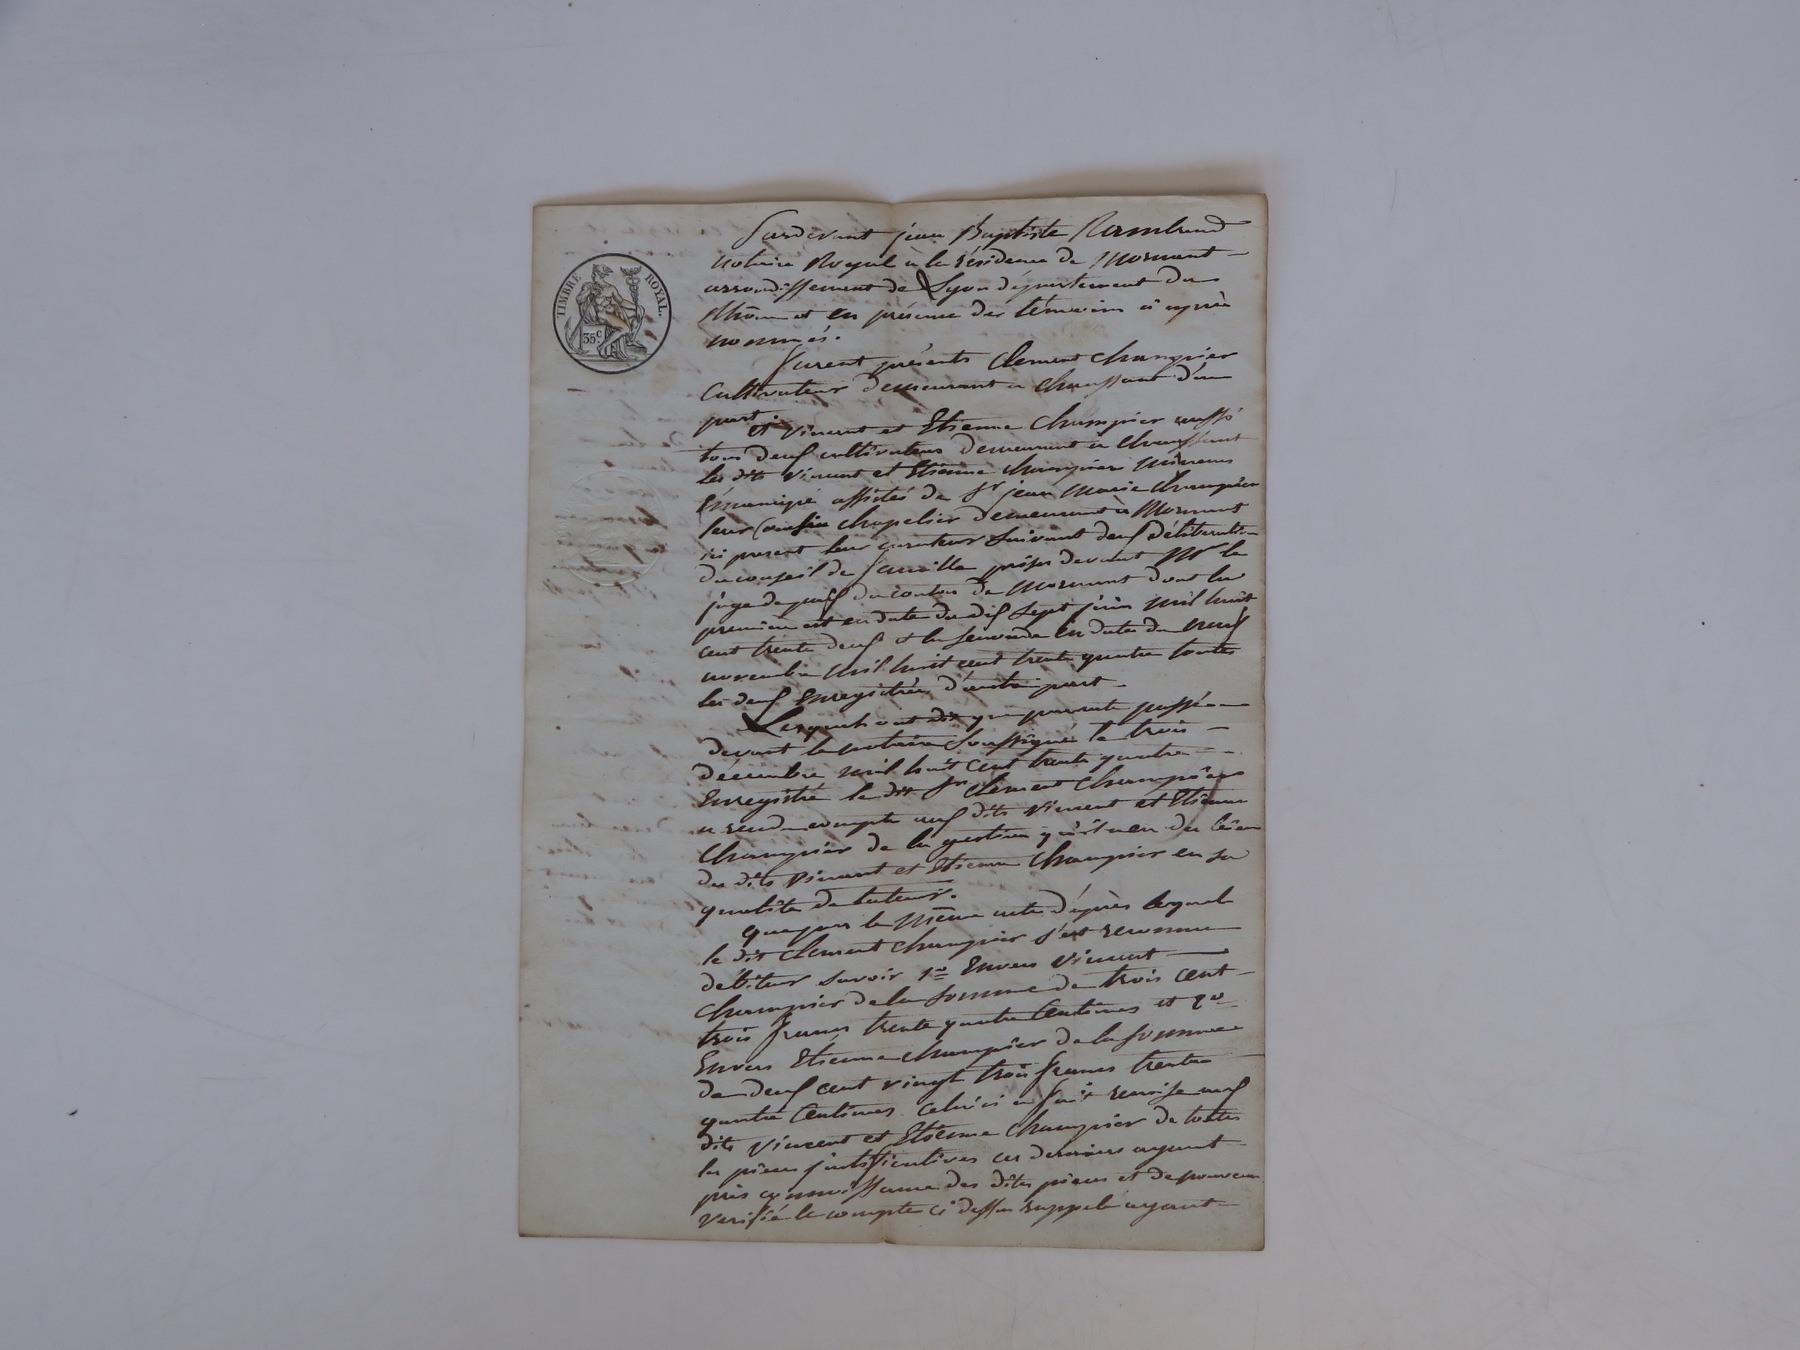 TIMBRE ROYAL.
35 c
Pardevant jean Baptiste Rambaud
notaire Royal à la résidence de Mornant
arrondissement de Lyon département du
Rhône et en présence des témoins ci après
nommés.
Furent présents Clement Champier
Cultivateur demeurant a Chaussant d'une
part.
et Vincent et Etienne Champier aussi
tous deux cultivateurs demeurant a Chaussant
les dits Vincent et Etienne Champier mineurs
Emancipé assistés de Sr jean Marie Champier
leur Cousin chapelier demeurant à Mornant
ici present leur curateur suivant deux délibération
du conseil de famille prises devant Mr le
juge de paix du canton de Mornant dont la
premiere est en date du dix sept juin mil huit
cent trente deux & la seconde en date du neuf
novembre mil huit cent trente quatre toutes
les deux Enregistrées d'autre part
Lesquels ont dit que par acte passé
devant le notaire soussigné le trois
décembre mil huit cent trente quatre
Enregistré le dit Sr Clement Champier
a rendu compte aux dits Vincent et Etienne
Champier de la gestion qu'il a eu des biens
des dits Vincent et Etienne Champier en sa
qualité de tuteur.
Que par le même acte d'après lequel
le dit Clement Champier s'est reconnu
débiteur savoir 1o Envers Vincent
Champier de la somme de trois cent
trois francs trente quatre Centimes et 2o
Envers Etienne Champier de la somme
de deux cent vingt trois francs trente
quatre Centimes celui ci a fait remise aux
dits Vincent et Etienne Champier de toutes
les pieces justificatives ces derniers ayant
pris connoissance des dites pieces et de nouveau
verifié le compte ci dessus rappelé ayant